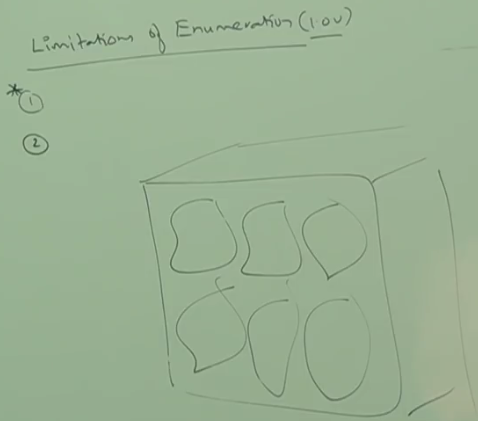 Limitations of Enumeration (1.0v)
* ①
②